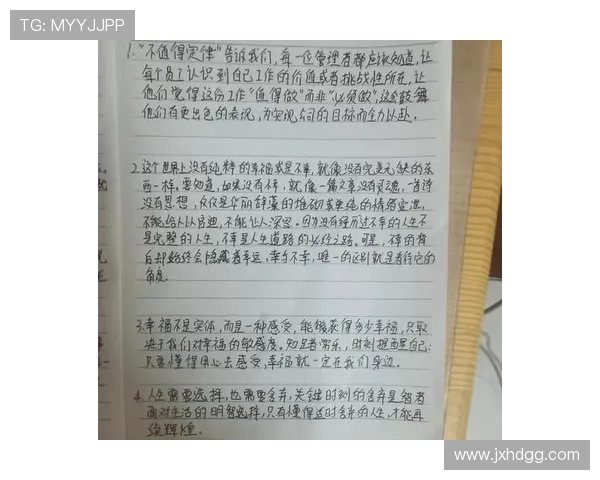 TG: MYYJJPP
1."不值得定律"告诉我们,每一位管理者都应该知道,让
每个员工认识到自己工作的价值或者挑战性所在,让
他们觉得这份工作"值得做"而非"必须做",这会鼓舞
他们有更出色的表现,为实现公司的目标而全力以赴。
2.这个世界上没有纯粹的幸福或是不幸,就像没有完美无缺的东
西一样。要知道,如果没有不幸,就像一篇文章没有灵魂,一首诗
没有思想,仅仅是华丽辞藻的堆砌或单纯的情绪宣泄,
不能给人以启迪,不能让人深思。因为没有经历过不幸的人生不
是完整的人生,不幸是人生道路的必经之路。可是,不幸的背
后却始终会隐藏着幸运,幸与不幸,唯一的区别就是看待它的
角度。
3.幸福不是实体,而是一种感受,能够获得多少幸福,只取
决于我们对幸福的敏感度。知足者常乐,时刻提醒自己:
只要懂得用心去感受,幸福就一定在我们身边。
4.人生需要选择,也需要舍弃,关键时刻的舍弃是智者
面对生活的明智选择,只有懂得适时舍弃的人,才能再
续辉煌。
www.jxhdgg.com